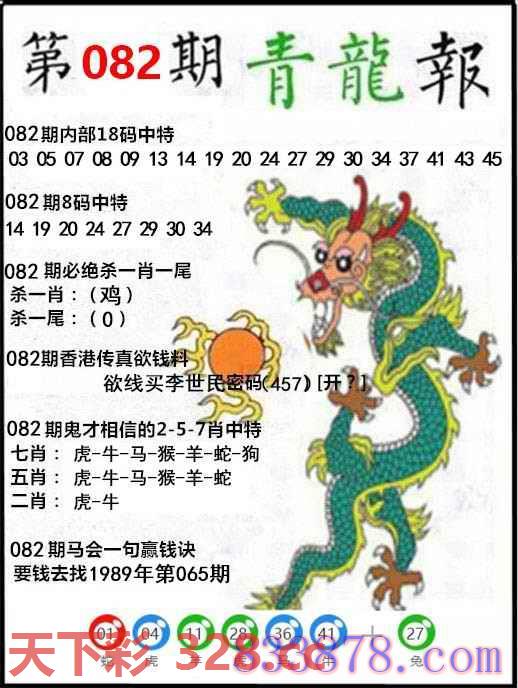 第082期青龍報
082期内部18码中特
03 05 07 08 09 13 14 19 20 24 27 29 30 34 37 41 43 45
082期8码中特
14 19 20 24 27 29 30 34
082期必绝杀一肖一尾
杀一肖：(鸡)
杀一尾：(0)
082期香港传真欲钱料
欲线买李世民密码(457) [开?]
082期鬼才相信的2-5-7肖中特
七肖：虎-牛-马-猴-羊-蛇-狗
五肖：虎-牛-马-猴-羊-蛇
二肖：虎-牛
082期马会一句赢钱诀
要钱去找1989年第065期
01 04 11 28 36 41 + 27
天下彩
蛇 虎 羊 虎 兔